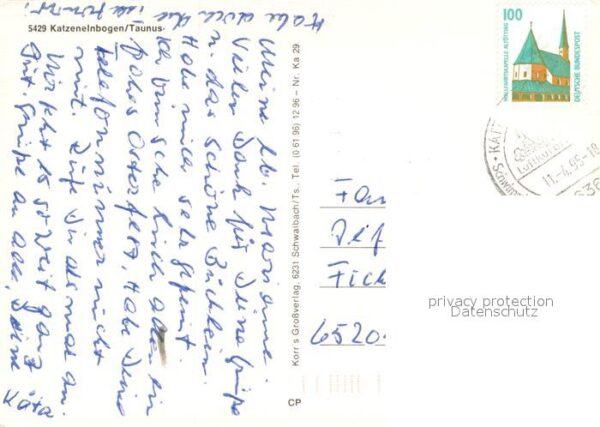 5429 Katzenelnbogen/Taunus
Meine lb. Marianne.
Vielen Dank für Deine Grüße
u. das schöne Büchlein.
Habe mich sehr gefreut.
Ich wünsche Euch allen ein
frohes Osterfest, Habe Deine
Telefonnummer nicht
mit. Rufe Du doch mal an.
Mir geht es soweit ganz
gut. Grüße an alle, Deine
Käta
Habe doch die
Korr's Großverlag, 6231 Schwalbach/Ts., Tel. (0 61 96) 12 96 – Nr. Ka 29
CP
100
WALLFAHRTSKAPELLE ALTÖTTING
DEUTSCHE BUNDESPOST
KAT
Schwimm
Luftkurort
11.-4.95-18
Fam
Fick
6520
privacy protection
Datenschutz